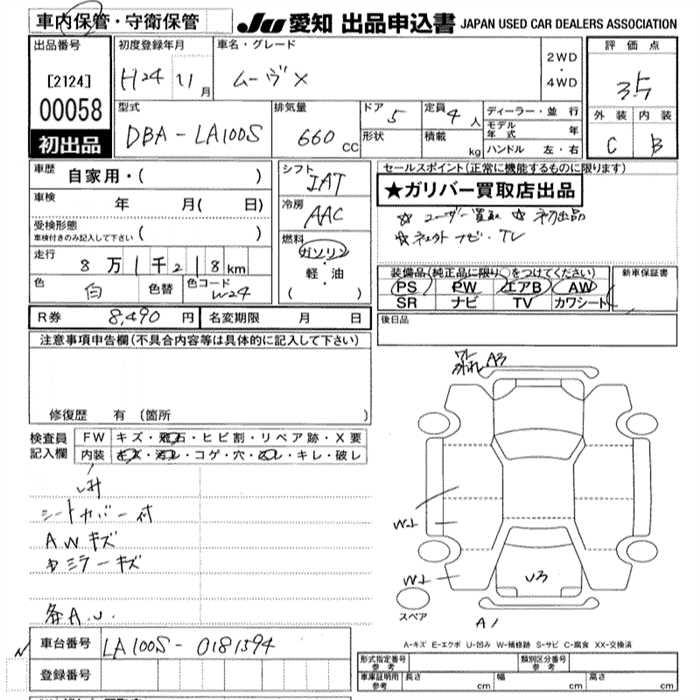 車内保管・守衛保管
JU 愛知 出品申込書 JAPAN USED CAR DEALERS ASSOCIATION
出品番号
[2124]
00058
初出品
初度登録年月
H24 11月
車名・グレード
ムーヴX
2WD
・
4WD
評価点
3.5
外装 内装
C B
型式
DBA-LA100S
排気量
660 cc
ドア 5
形状
定員 4 人
積載 kg
ディーラー・並行
モデル年式 年
ハンドル 左・右
車歴 自家用・( )
車検 年 月( 日)
受検形態
車検付きのみ記入して下さい ( )
走行 8万1千218km
色 白 色替 色コード W24
シフト
IAT
冷房
AAC
燃料
ガソリン
・
軽・油
( )
セールスポイント(正常に機能するものに限ります)
★ガリバー買取店出品
☆ユーザー買取 ☆初出品
☆ ナビ・TV
装備品(純正品に限り○をつけてください)
PS PW エアB AW
SR ナビ TV カワシート
新車保証書
R券 8,490円 名変期限 月 日
後日品
注意事項申告欄(不具合内容等は具体的に記入して下さい)
修復歴 有(箇所
検査員記入欄
FW キズ・飛石・ヒビ割・リペア跡・X要
内装 キズ・汚レ・コゲ・穴・ ・キレ・破レ
シートカバー付
AWキズ
ミラーキズ
各A.U.
A3
W2
W2
U3
A1
スペア
A-キズ E-エクボ U-凹み W-補修跡 S-サビ C-腐食 XX-交換済
車台番号 LA100S-0181594
登録番号
形式指定番号
参考
類別区分番号
参考
車庫証明用
参考
長さ cm 幅 cm 高さ cm